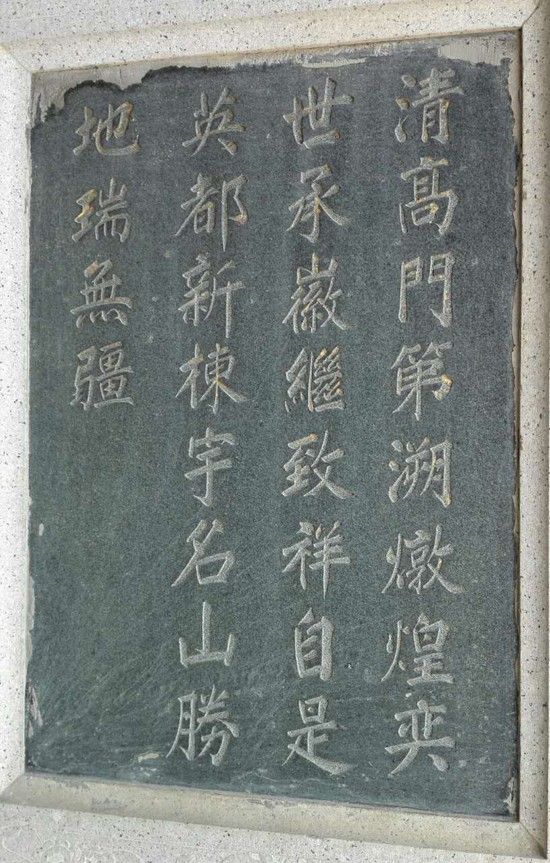 清高門第溯燉煌奕
世承徽繼致祥自是
英都新棟宇名山勝
地瑞無疆